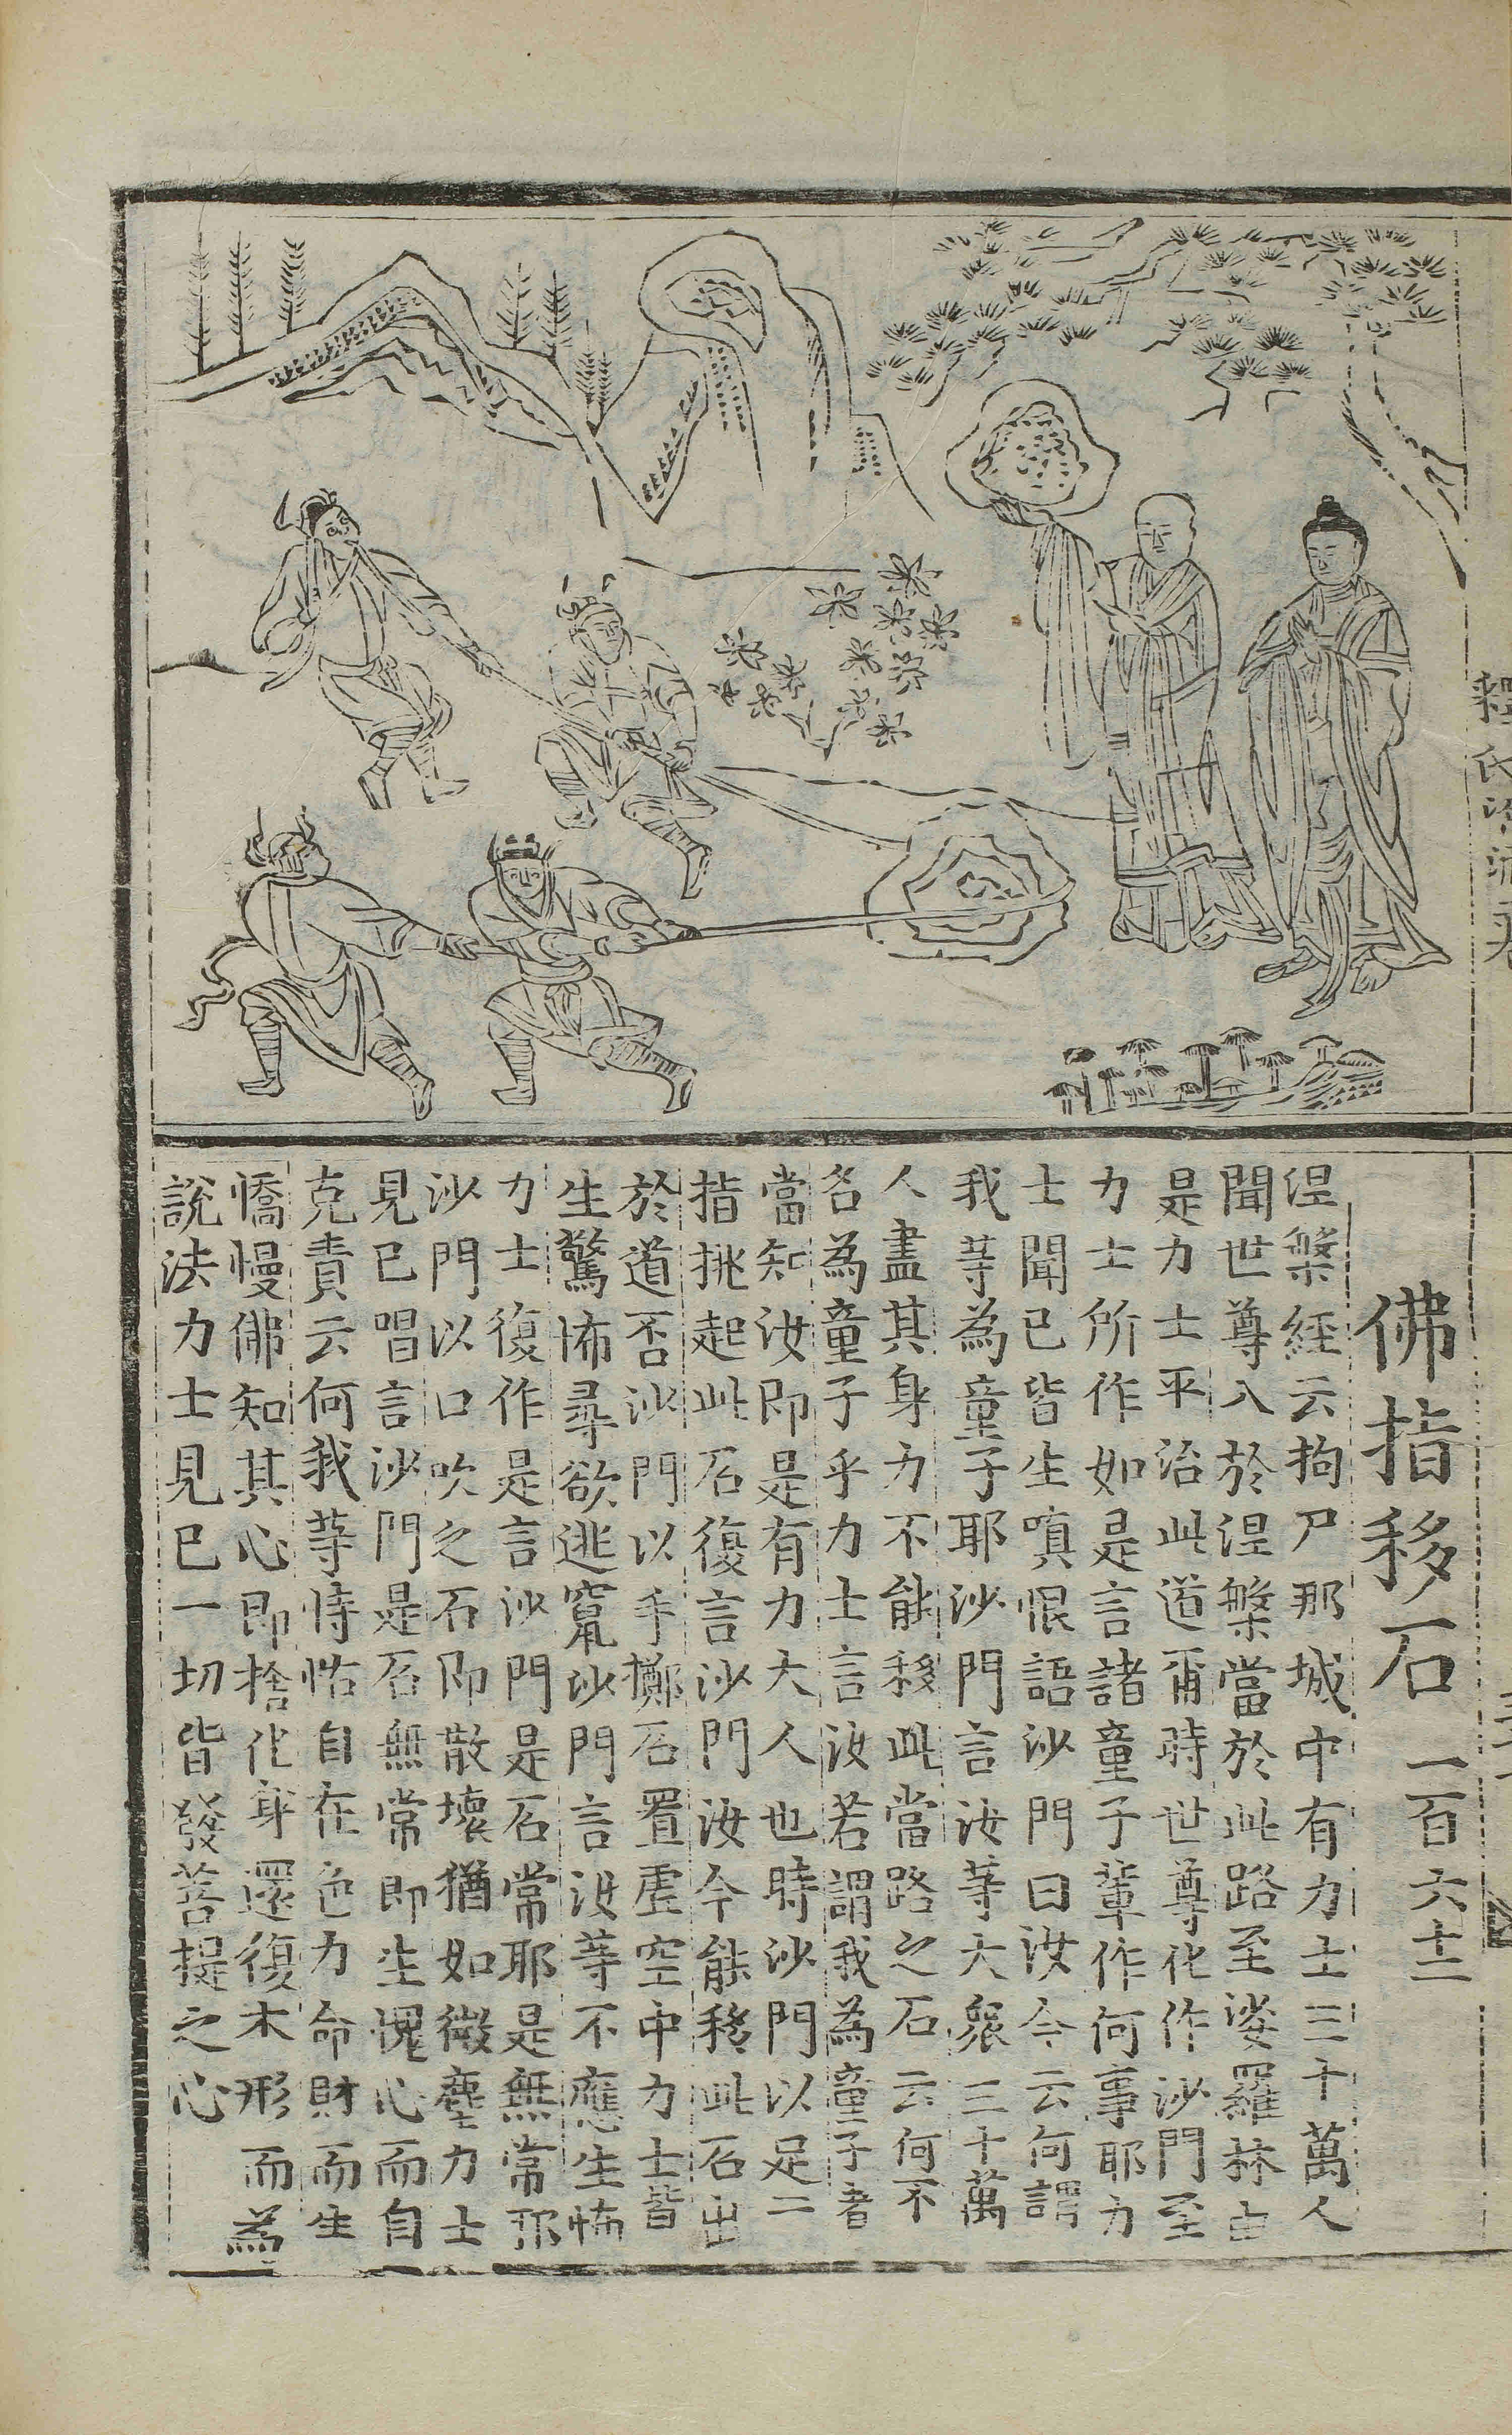 佛指移石 一百六十二
涅槃經云拘尸那城中有力士三十萬人
聞世尊入於涅槃當於此路至娑羅林由
是力士平治此道爾時世尊化作沙門至
力士所作如是言諸童子輩作何事耶力
士聞已皆生嗔恨語沙門曰汝今云何謂
我等為童子耶沙門言汝等大衆三十萬
人盡其身力不能移此當路之石云何不
名為童子乎力士言汝若謂我為童子者
當知汝即是有力大人也時沙門以足二
指挑起此石復言沙門汝今能移此石出
於道否沙門以手擲石置虛空中力士皆
生驚怖尋欲逃竄沙門言汝等不應生怖
力士復作是言沙門是石常耶是無常耶
沙門以口吹之石即散壞猶如微塵力士
見已唱言沙門是石無常即生愧心而自
克責云何我等恃怙自在色力命財而生
憍慢佛知其心即捨化身還復本形而為
說法力士見已一切皆發菩提之心